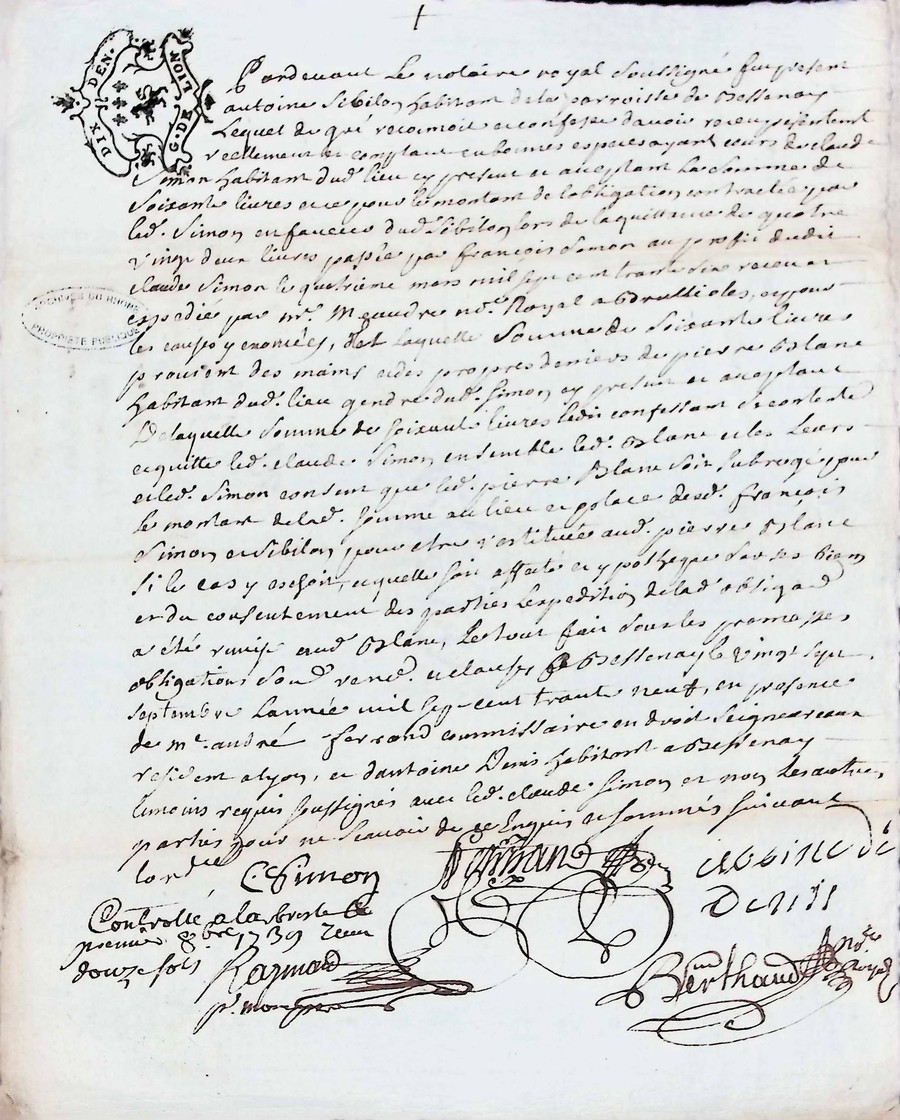 1
DIX DEN.
G. DE LION
Pardevant Le notaire royal soussigné fut present
antoine Sibilon habitant de la parroisse de Bessenay
Lequel de gré reconnoit et confesse d'avoir receu présentemt
reellement et comptant en bonnes especes ayant cours de claude
Simon habitant dud. lieu cy present et acceptant La somme de
Soixante livres et ce pour le montant de lobligation contractée par
led. Simon en faveur dud. Sibilon lors de la quittance de quatre
vingt deux livres passée par françois Simon au profit dudit
claude Simon le quatrième mars mil sept cent trente six receu et
expediée par mr. Meaudre nre. Royal a Brussioles, et pour
les causes y enoncées, Laquelle Somme de Soixante livres
provient des mains et des propres deniers de pierre Blanc
habitant dud. lieu gendre dud. Simon cy present et acceptant
De laquelle somme de soixante livres ledit confessant se contente
et quitte led. claude Simon ensemble led. Blanc et les Leurs
et led. Simon consent que led. pierre Blanc soit subrogé pour
le montant de lad. somme au lieu et place desd. françois
Simon et Sibilon pour etre restituée aud. pierre Blanc
si le cas y eschoit, et quelle soit affecté et ypothequé sur ses biens
et du consentement des parties Lexpedition de lad. obligaon
a été remise aud. Blanc, Le tout fait sous les promesses
obligations soud. renon. et clauses Bessenay le vingt sept
septembre Lannée mil sept cent trante neuf, en presence
de mr. andré ferrand commissaire en droit Seigneureaux
resident a lyon, et dantoine Denis habitant a Bessenay
temoins requis soussignés avec led. claude Simon et non Les autres
parties pour ne scavoir de ce Enquis et sommés suivant
lordce
C. Simon
antoine de
Denis
Controllé a la bresle le
premier 8bre 1739 receu
douze sols
Raymond
Berthaud nre Royal
ARCHIVES DU RHONE
PROPRIÉTÉ PUBLIQUE